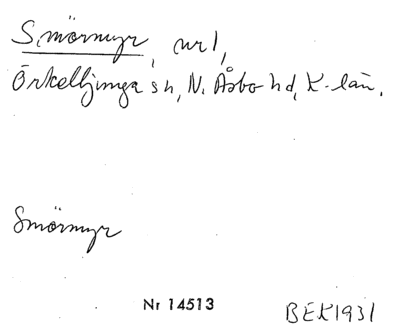 Smörmyr, nr 1,
Örkelljunga sn, N. Åsbo hd, K-län.
Smörmyr
Nr 14513
BEK1931